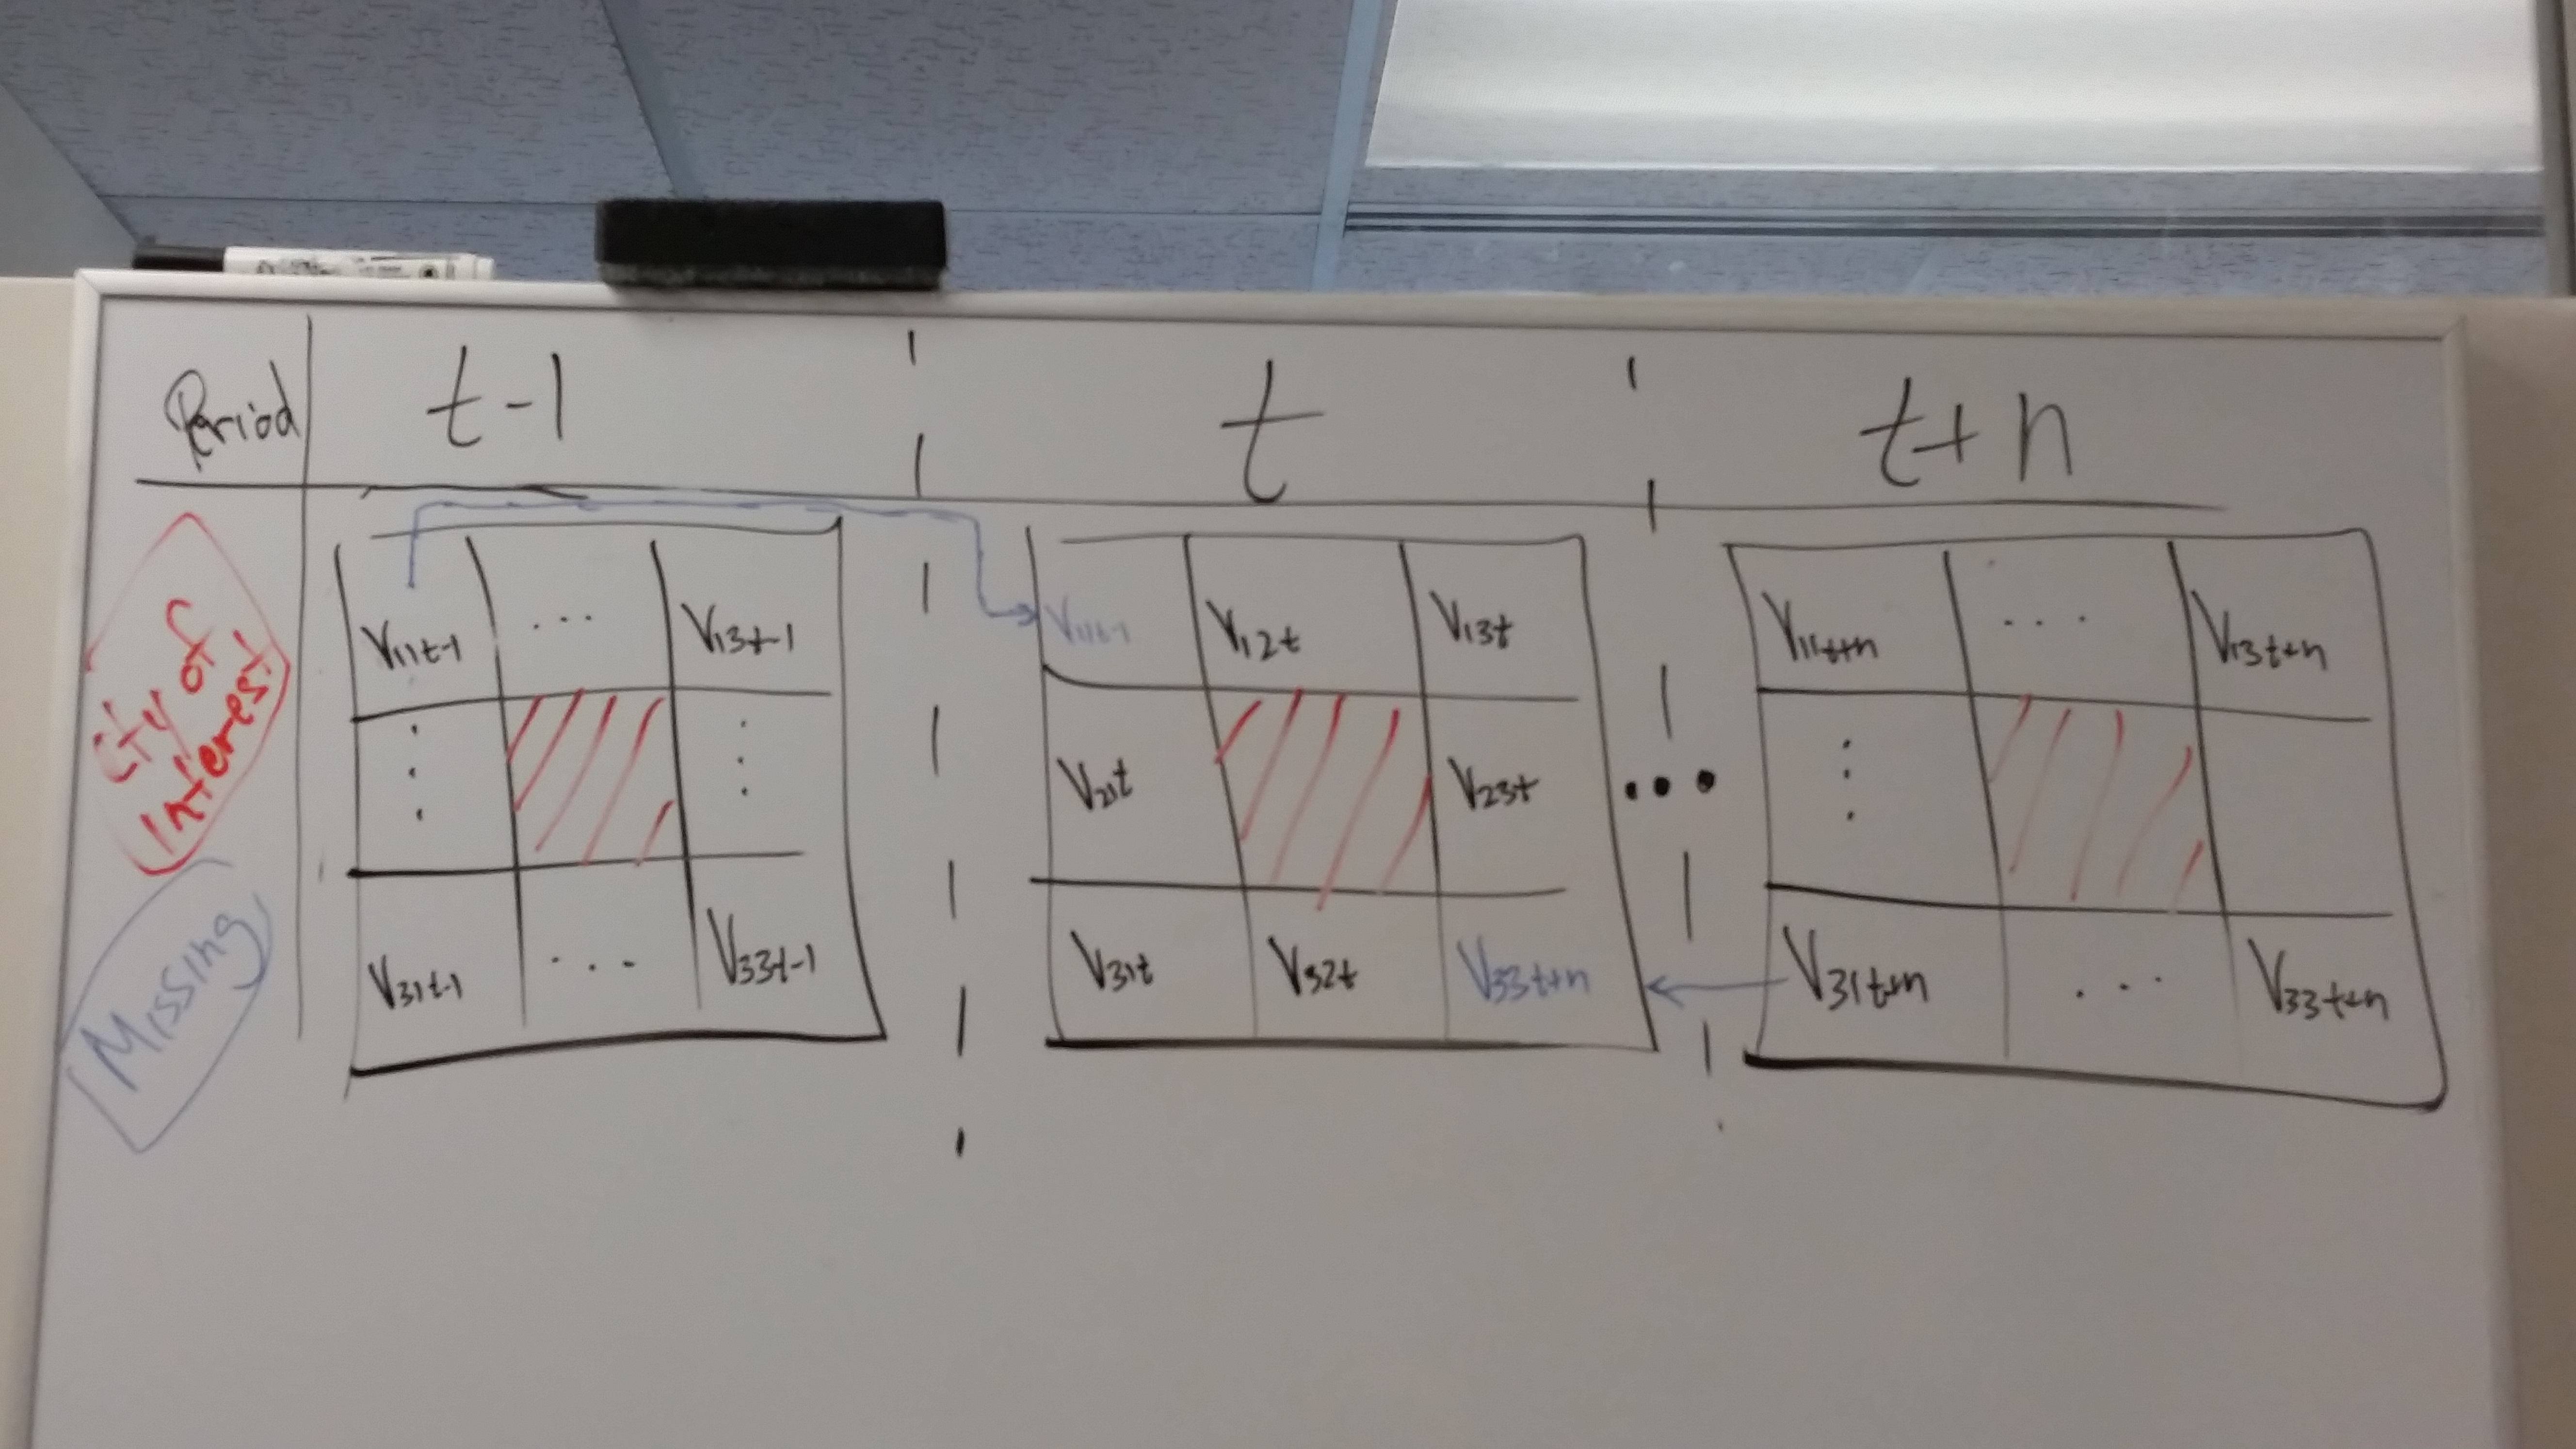 Period t-1 t t+n
City of
Interest
Missing
V11t-1 ... V13t-1
V31t-1 ... V33t-1
V11t-1 V12t V13t
V21t V23t
V31t V32t V33t+n
...
V11t+n .... V13t+n
V31t+n ... V33t+n